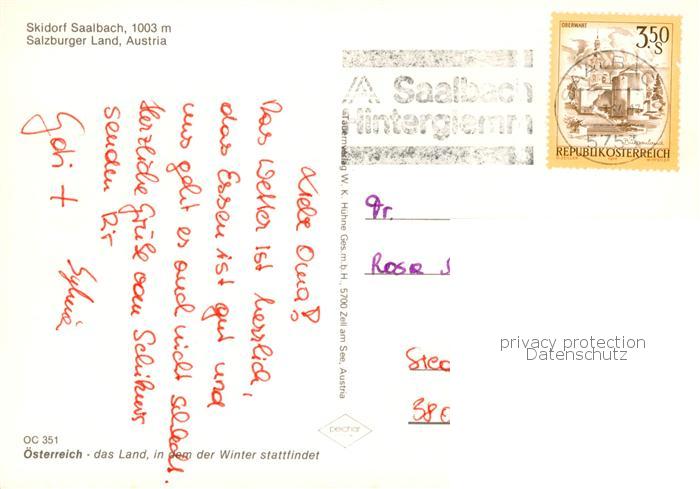 Skidorf Saalbach, 1003 m
Salzburger Land, Austria
Liebe Oma!
Das Wetter ist herrlich,
das Essen ist gut und
uns geht es auch nicht schlecht.
Herzliche Grüße vom Schikurs
senden Dir
Gabi + Sylvia
OC 351
Österreich - das Land, in dem der Winter stattfindet
Tauernverlag W. K. Hühne Ges.m.b.H., 5700 Zell am See, Austria
peichar
Saalbach
Hinterglemm
OBERWART
3.50
S
5753
Burgenland
REPUBLIK ÖSTERREICH
Fr.
Rosa
privacy protection
Datenschutz